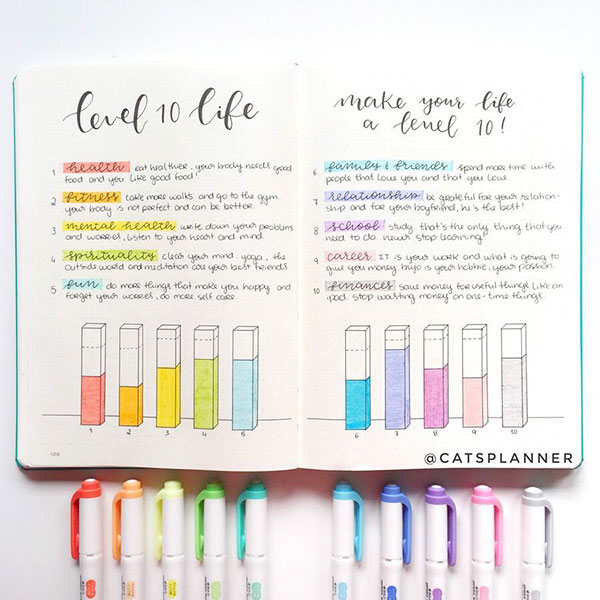 level 10 life
1 health eat healthier, your body needs good
food and you like good food!
2 fitness take more walks and go to the gym
your body is not perfect and can be better
3 mental health write down your problems
and worries, listen to your heart and mind.
4 spirituality clear your mind. yoga, the
outside world and meditation are your best friends
5 fun do more things that make you happy and
forget your worries, do more self care
1 2 3 4 5
128
make your life
a level 10!
6 family & friends spend more time with
people that love you and that you love
7 relationship be grateful for your relation-
ship and for your boyfriend, he's the best!
8 school study. that's the only thing that you
need to do never stop learning!
9 career. IT is your work and what is going to
give you money bujo is your hobbie, your passion
10 finances save money for useful things like an
ipad. stop wasting money on one-time things
6 7 8 9 10
@CATSPLANNER